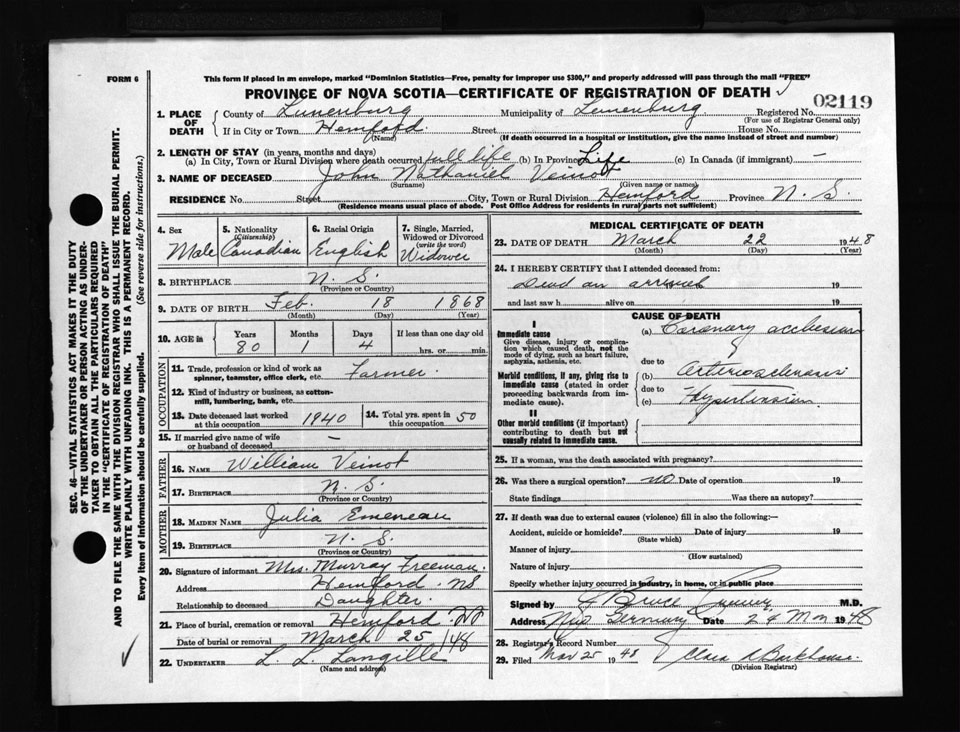 FORM 6
This form if placed in an envelope, marked "Dominion Statistics—Free, penalty for improper use $300," and properly addressed will pass through the mail "FREE"
PROVINCE OF NOVA SCOTIA—CERTIFICATE OF REGISTRATION OF DEATH
02119
1. PLACE OF DEATH County of Lunenburg Municipality of Lunenburg Registered No.
(For use of Registrar General only)
If in City or Town Hemford Street House No.
(Name) (If death occurred in a hospital or institution, give the name instead of street and number)
2. LENGTH OF STAY (in years, months and days)
(a) In City, Town or Rural Division where death occurred full life (b) In Province Life (c) In Canada (if immigrant) —
3. NAME OF DECEASED John Nathaniel Veinot
(Surname) (Given name or names)
RESIDENCE No. Street City, Town or Rural Division Hemford Province N. S.
(Residence means usual place of abode. Post Office Address for residents in rural parts not sufficient)
4. Sex Male
5. Nationality (Citizenship) Canadian
6. Racial Origin English
7. Single, Married, Widowed or Divorced (write the word) Widower
8. BIRTHPLACE N. S.
(Province or Country)
9. DATE OF BIRTH Feb. 18 1868
(Month) (Day) (Year)
10. AGE in Years Months Days If less than one day old
80 1 4 hrs. or min.
OCCUPATION
11. Trade, profession or kind of work as spinner, teamster, office clerk, etc. Farmer.
12. Kind of industry or business, as cotton-mill, lumbering, bank, etc.
13. Date deceased last worked at this occupation 1940
14. Total yrs. spent in this occupation 50
15. If married give name of wife or husband of deceased —
FATHER
16. NAME William Veinot
17. BIRTHPLACE N. S.
(Province or Country)
MOTHER
18. MAIDEN NAME Julia Emeneau
19. BIRTHPLACE N. S.
(Province or Country)
20. Signature of informant Mrs. Murray Freeman.
Address Hemford. NS
Relationship to deceased Daughter.
21. Place of burial, cremation or removal Hemford NS
Date of burial or removal March 25/48
22. UNDERTAKER L. L. Langille
(Name and address)
MEDICAL CERTIFICATE OF DEATH
23. DATE OF DEATH March 22 1948
(Month) (Day) (Year)
24. I HEREBY CERTIFY that I attended deceased from
Dead on arrival 19
and last saw h alive on 19
CAUSE OF DEATH
I
Immediate cause
Give disease, injury or complication which caused death, not the mode of dying, such as heart failure, asphyxia, asthenia, etc.
(a) Coronary occlusion
due to
Morbid conditions, if any, giving rise to immediate cause (stated in order proceeding backwards from immediate cause).
(b) Arteriosclerosis
due to
(c) Hypertension
II
Other morbid conditions (if important) contributing to death but not causally related to immediate cause.
25. If a woman, was the death associated with pregnancy?
26. Was there a surgical operation? no Date of operation 19
State findings Was there an autopsy?
27. If death was due to external causes (violence) fill in also the following:—
Accident, suicide or homicide? Date of injury 19
(State which)
Manner of injury
(How sustained)
Nature of injury
Specify whether injury occurred in industry, in home, or in public place
Signed by Bruce M.D.
Address New Germany Date 24 Mar 1948
28. Registrar's Record Number
29. Filed Mar 25 1948
(Division Registrar)
SEC. 46—VITAL STATISTICS ACT MAKES IT THE DUTY
OF THE UNDERTAKER OR PERSON ACTING AS UNDER-
TAKER TO OBTAIN ALL THE PARTICULARS REQUIRED
IN THE "CERTIFICATE OF REGISTRATION OF DEATH"
AND TO FILE THE SAME WITH THE DIVISION REGISTRAR WHO SHALL ISSUE THE BURIAL PERMIT.
WRITE PLAINLY WITH UNFADING INK. THIS IS A PERMANENT RECORD.
Every item of information should be carefully supplied. (See reverse side for instructions.)